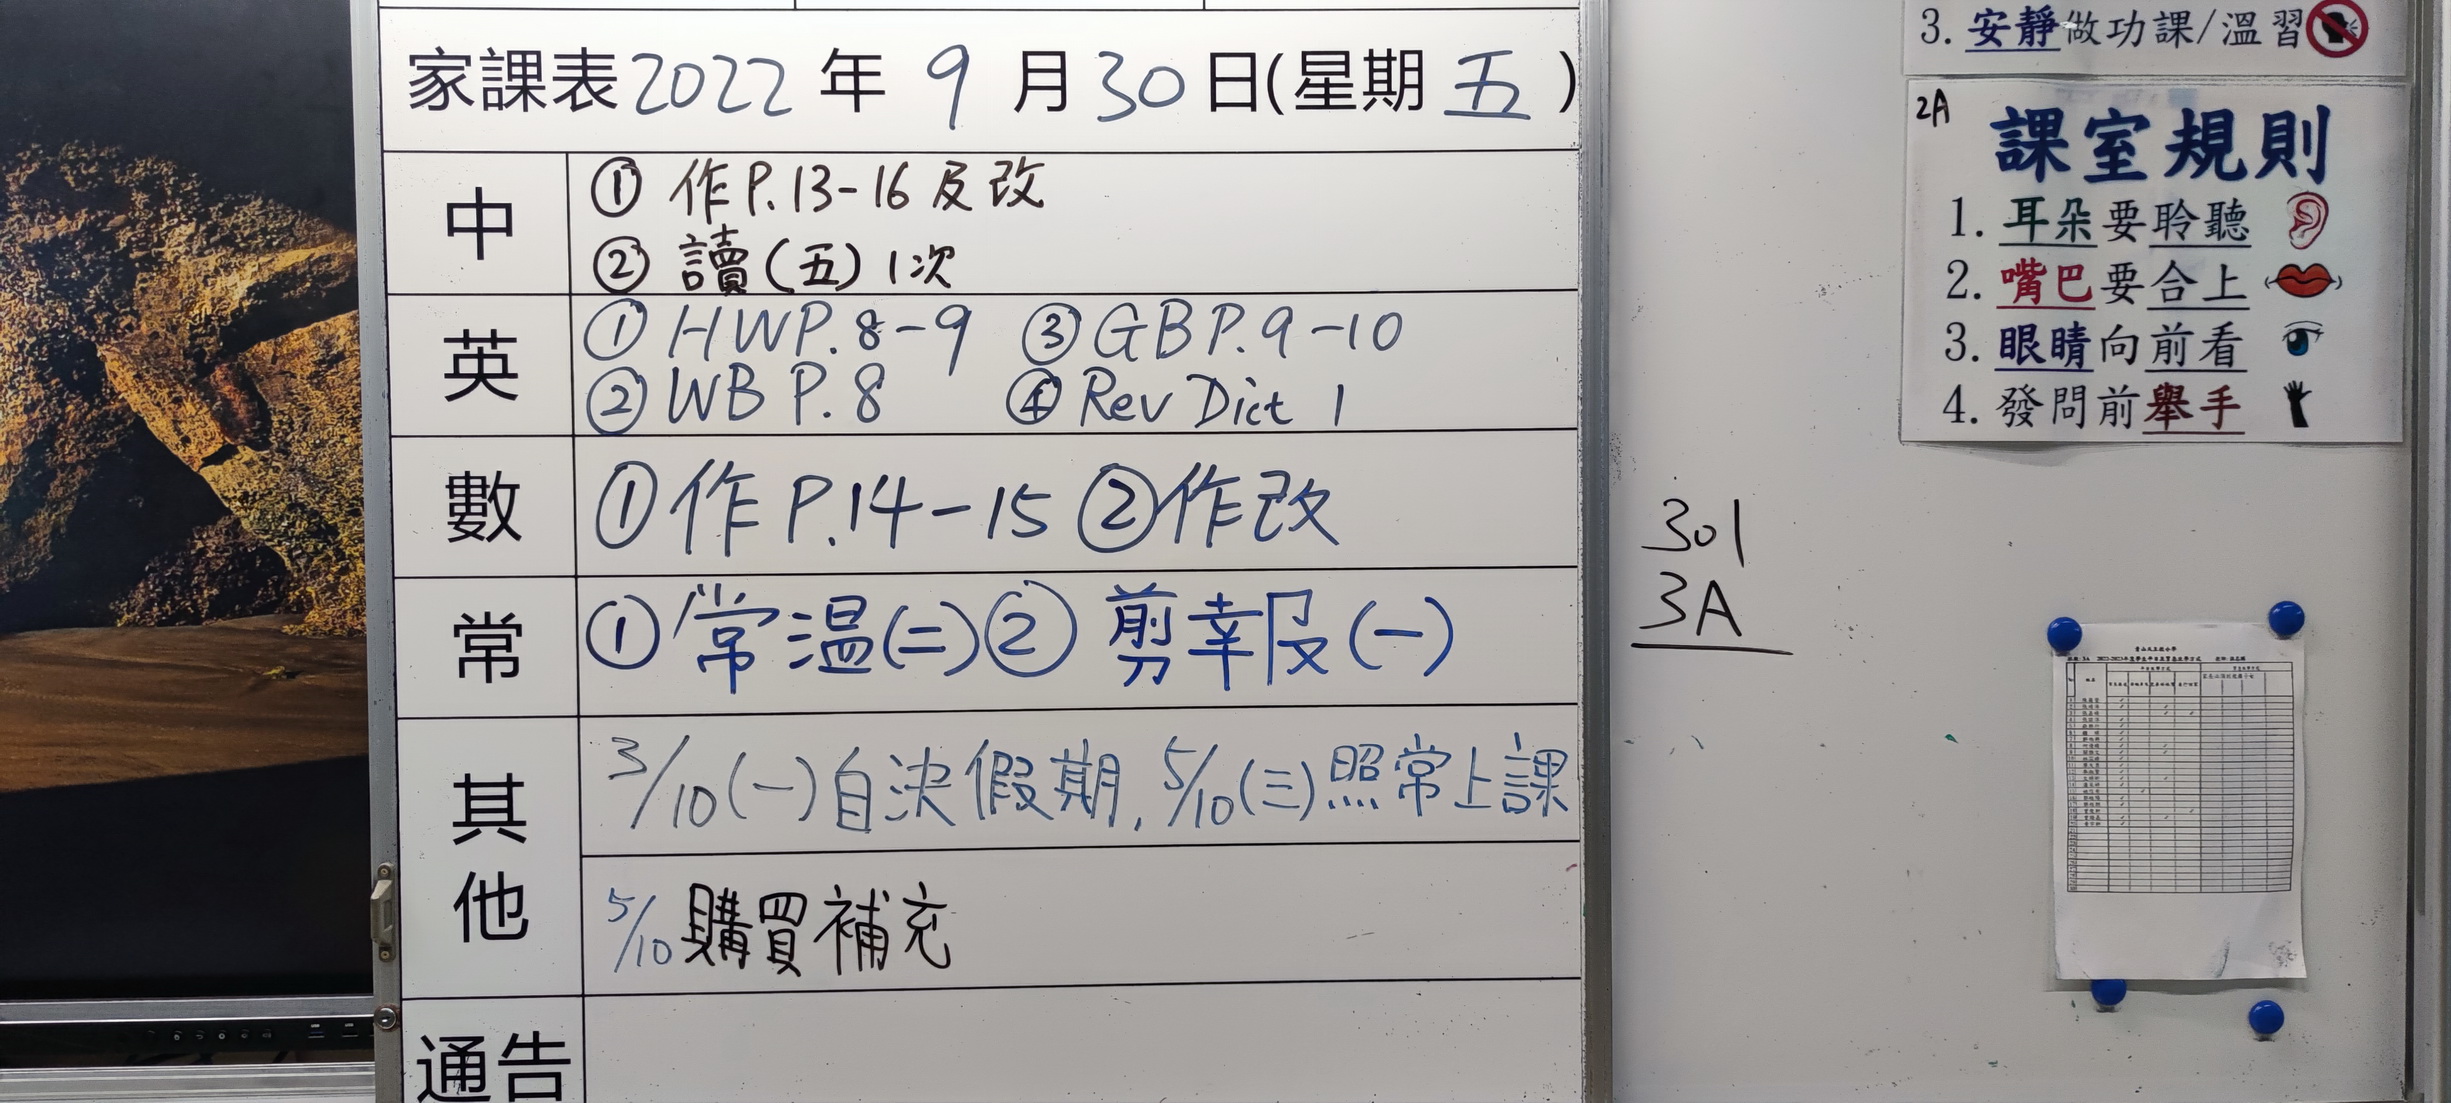 家課表2022年9月30日(星期五)
中
① 作P.13-16及改
② 讀(五)1次
英
① HWP.8-9 ③ GBP.9-10
② WB P.8 ④ Rev Dict 1
數
①作P.14-15 ②作改
常
①常温(二)② 剪報(一)
其他
3/10(一)自決假期,5/10(三)照常上課
5/10購買補充
通告
3. 安靜做功課/溫習
2A
課室規則
1. 耳朵要聆聽
2. 嘴巴要合上
3. 眼睛向前看
4. 發問前舉手
301
3A